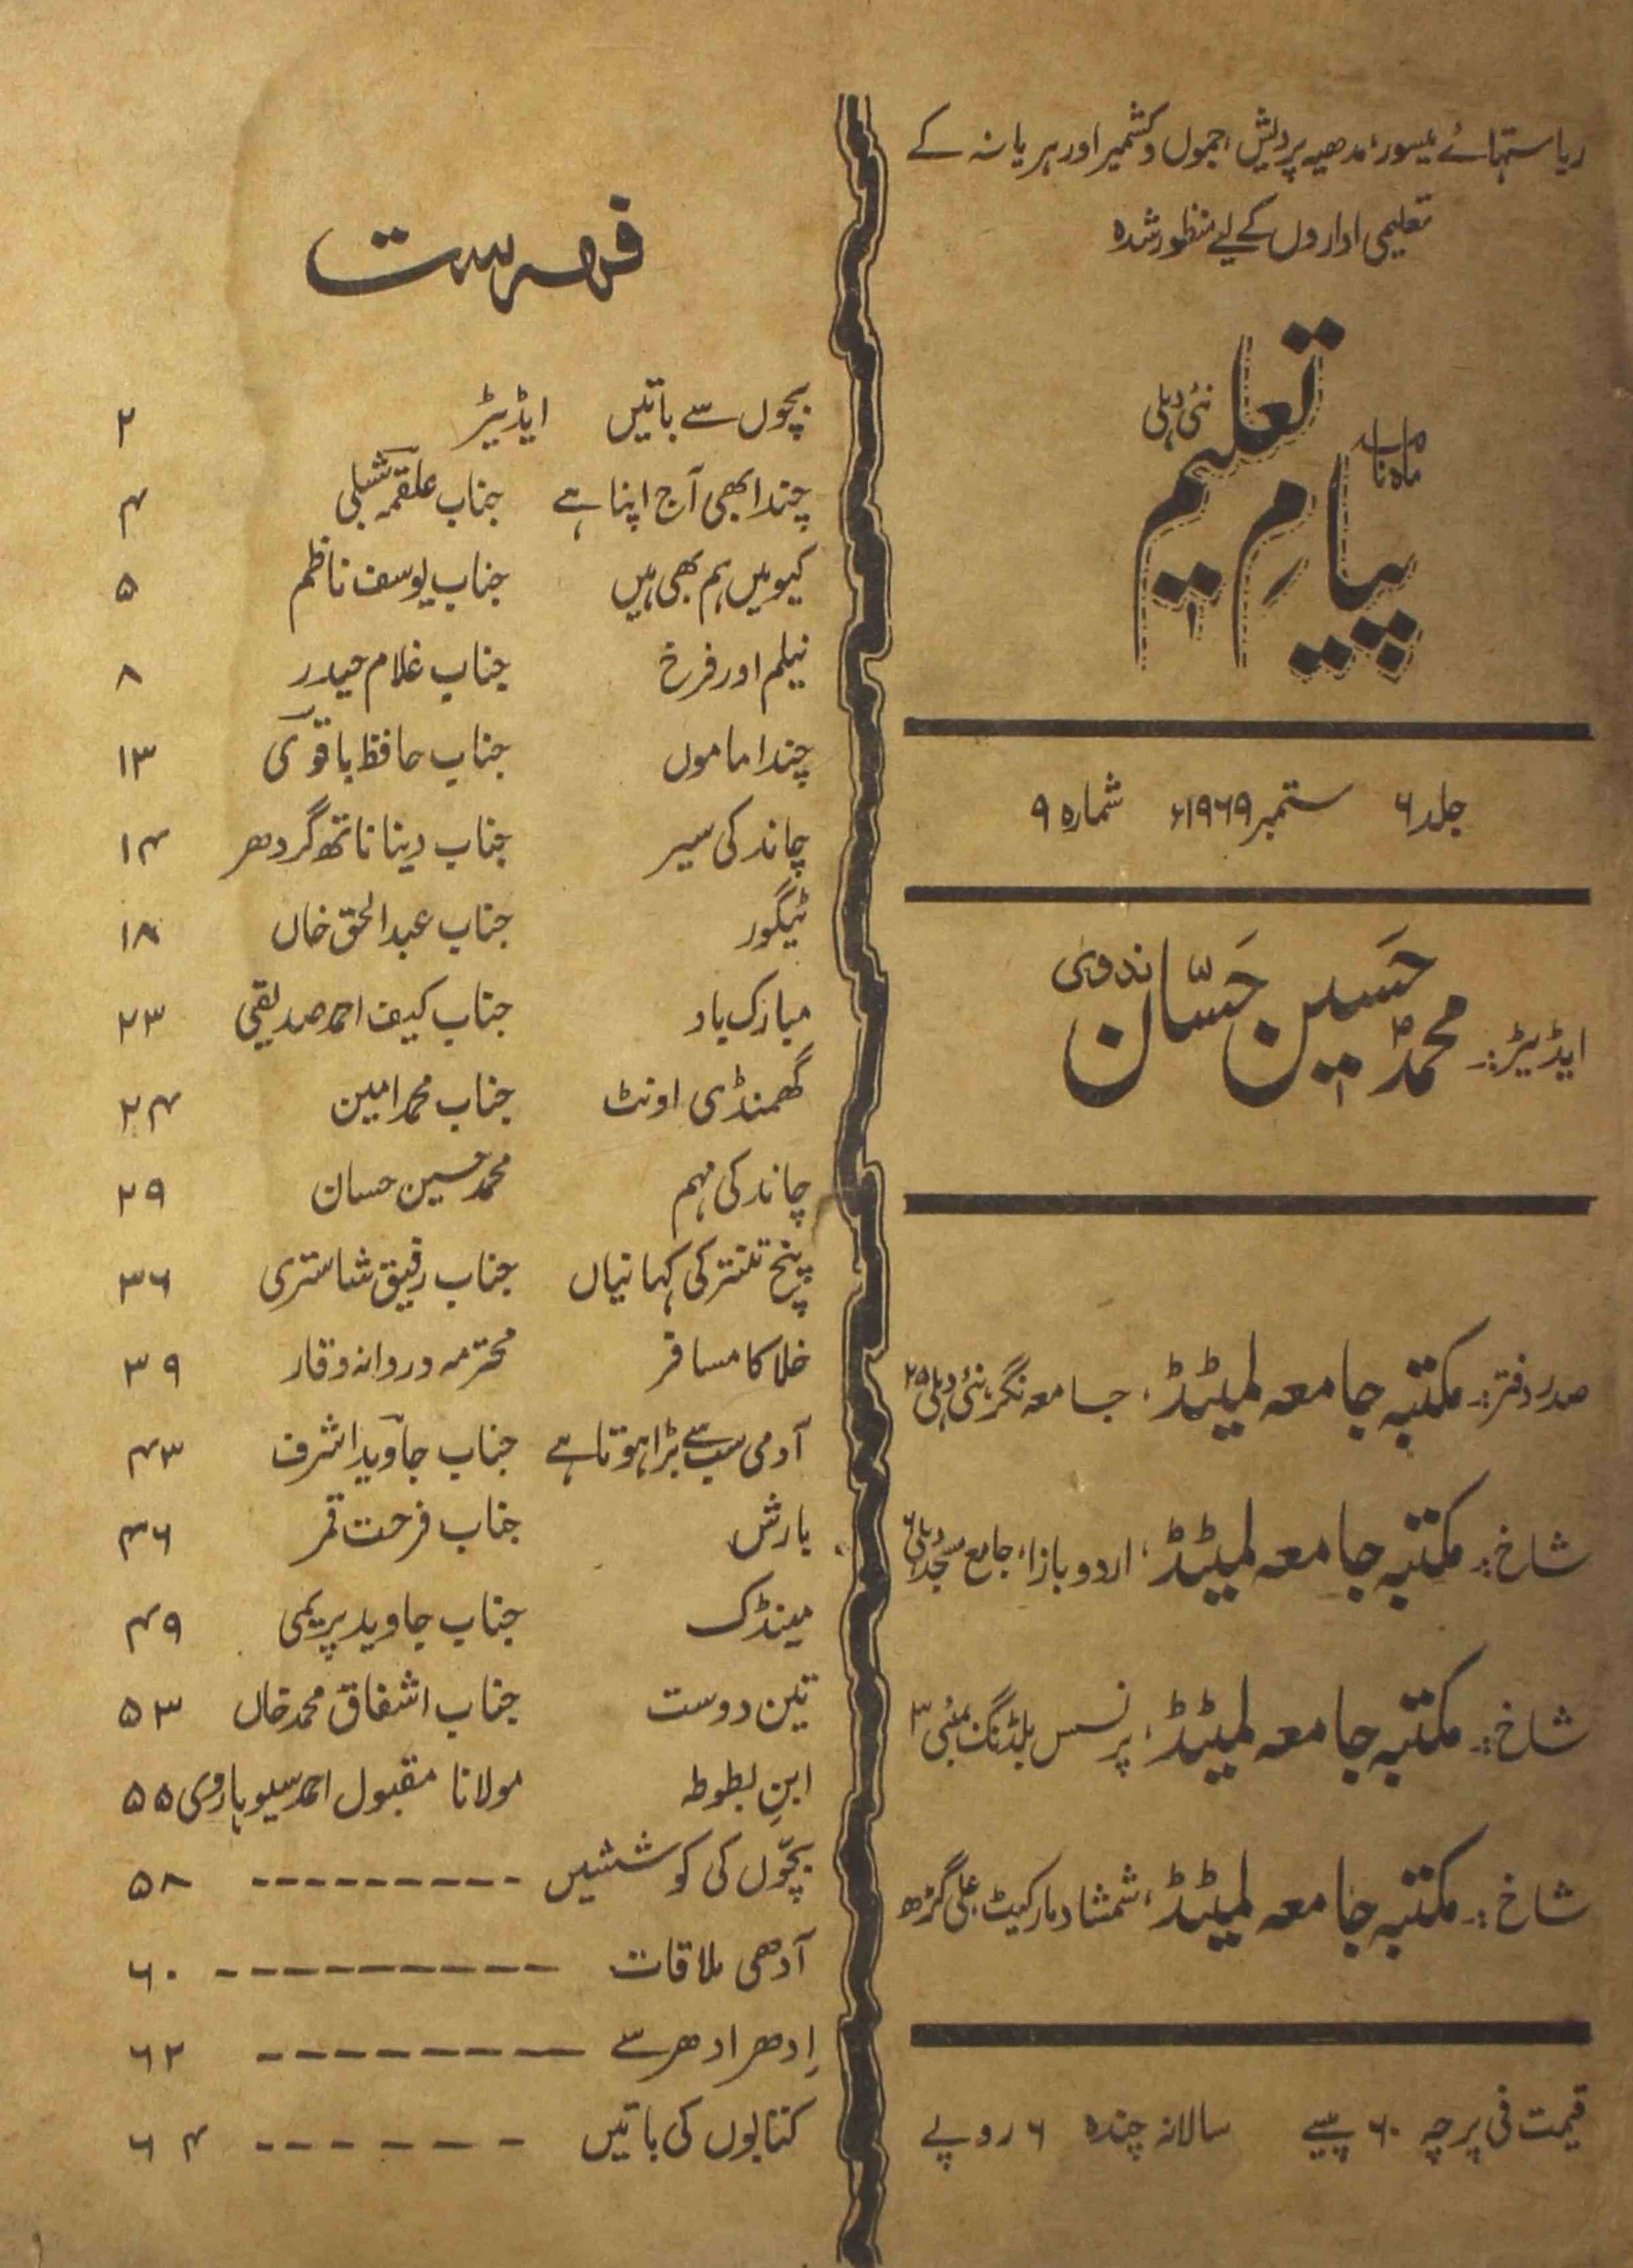 ریاستہائے میسور، مدھیہ پردیش، جموں و کشمیر اور ہریانہ کے
تعلیمی اداروں کے لیے منظور شدہ
ماہنامہ پیامِ تعلیم نئی دہلی
جلد ۶ ستمبر ۱۹۶۹ء شمارہ ۹
ایڈیٹر:۔ محمدؐ حَسین حَسّان ندوی
صدر دفتر:۔ مکتبہ جامعہ لمیٹڈ، جامعہ نگر، نئی دہلی ۲۵
شاخ:۔ مکتبہ جامعہ لمیٹڈ، اردو بازار، جامع مسجد دہلی ۶
شاخ:۔ مکتبہ جامعہ لمیٹڈ، پرنسس بلڈنگ بمبئی ۳
شاخ:۔ مکتبہ جامعہ لمیٹڈ، شمشاد مارکیٹ، علی گڑھ
قیمت فی پرچہ ۶۰ پیسے سالانہ چندہ ۶ روپے
فہرست
بچوں سے باتیں ایڈیٹر ۲
چندا بھی آج اپنا ہے جناب علقمہ شبلی ۴
کیو میں ہم بھی ہیں جناب یوسف ناظم ۵
نیلم اور فرخ جناب غلام حیدر ۸
چندا ماموں جناب حافظ باقوی ۱۳
چاند کی سیر جناب دینا ناتھ گردھر ۱۴
ٹیگور جناب عبدالحق خاں ۱۸
مبارک باد جناب کیف احمد صدیقی ۲۳
گھمنڈی اونٹ جناب محمد امین ۲۴
چاند کی مہم محمد حسین حسان ۲۹
پنچ تنتر کی کہانیاں جناب رفیق شاستری ۳۶
خلا کا مسافر محترمہ دردانہ وقار ۳۹
آدمی سب سے بڑا ہوتا ہے جناب جاوید اشرف ۴۳
بارش جناب فرحت قمر ۴۶
مینڈک جناب جاوید پریمی ۴۹
تین دوست جناب اشفاق محمد خاں ۵۳
ابنِ بطوطہ مولانا مقبول احمد سیوہاروی ۵۵
بچّوں کی کوششیں --------- ۵۸
آدھی ملاقات --------- ۶۰
اِدھر ادھر سے -------- ۶۲
کتابوں کی باتیں ------ ۶۴